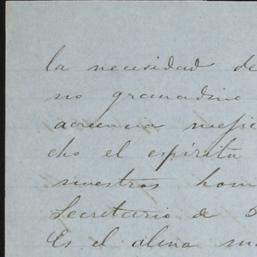 la necesidad de
no granadino
acreencia
cho el espíritu
nuestros hom
Secretario de
Es el alma